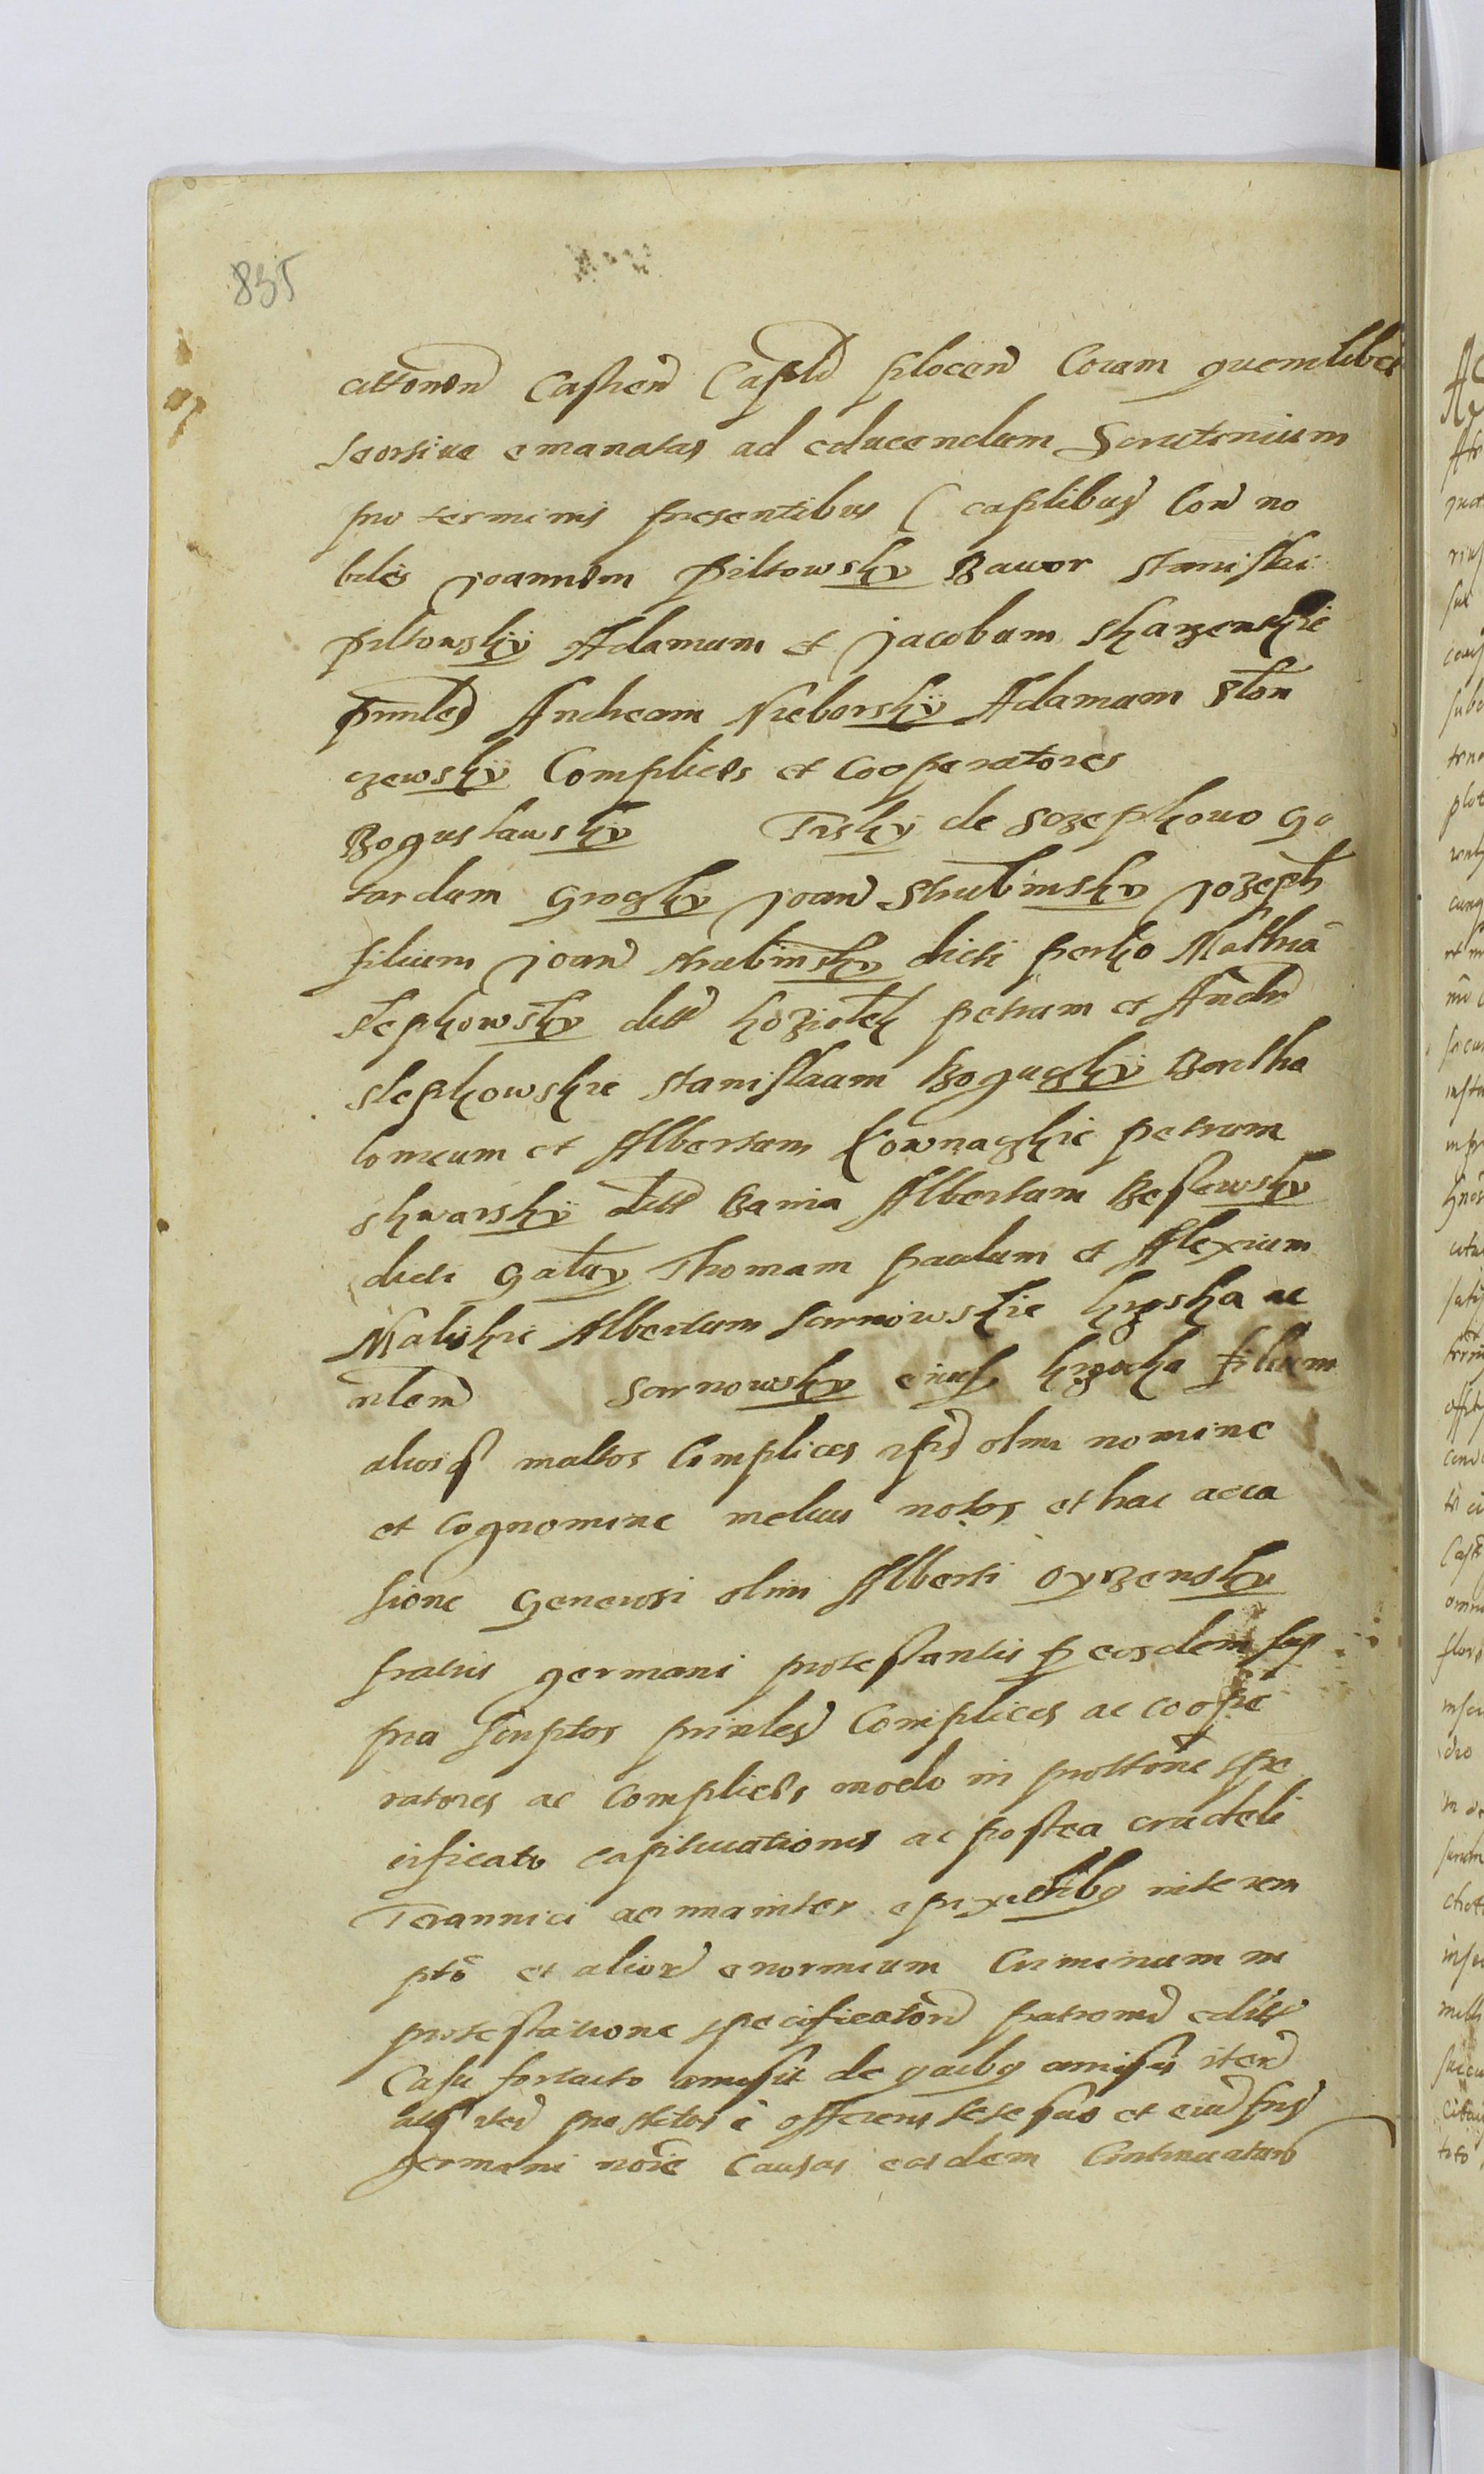 835
cittonen Castren Captli plocen Coram quemlibet
seorsiue emanatas ad educendum Scrutinium
pro terminis presentibus Captlibus Con no
biles joannem piltowsky Bawor stanislai
piltowsky Adamum et jacobum skarzenskie
prinles Andream Nieborsky Adamum Slon
czewsky Complices et Cooperatores
Boguslawsky de Sozephowo Go
tardum grosky joan Strubinsky jozeph
filium joan strubinsky dicti perlio Mathia
slepkowsky ditt koziolek petrum et Andr
slepkowskie stanislaum Bogusky Bartho
lomeum et Albertum kownaczkie petrum
skwarsky ditt Bania Albertum
dicti Thomam paulum et Alexium
Maliskie Albertum sarnowskie ac
sarnowsky eius filium
aliosq multos Complices ipsis olim nomine
et Cognomine melius notos et hac occa
sione Generosi olim Alberti oyrzensky
fratris germani protestantis p eosdem sup
pra scriptos prinles Complices ac coope
ratores ac Complices modo in prottone spe
cificato captiuationis ac postea crudeli
Terannici ac interem
pto et alior enormium Criminum in
protestatione specificator patronis editis
Casu fortuito amisit de quibq amissis iter
offerens sese suo et eiusd fris
germani noie Causas easdem Continuaturo